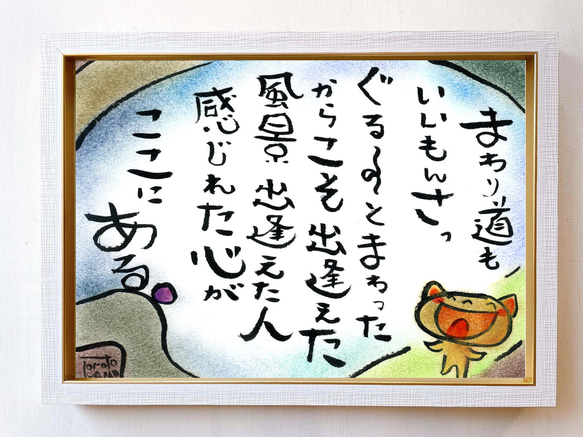 まわり道も
いいもんさっ
ぐるぐるとまわった
からこそ出逢えた
風景 出逢えた人
感じれた心が
ここに
ある